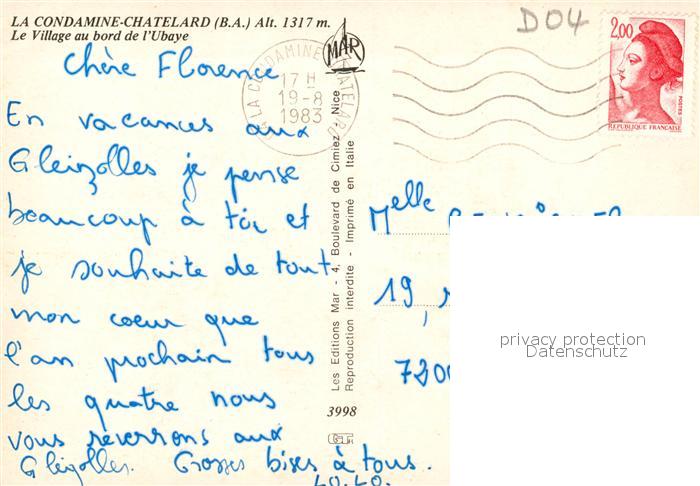 LA CONDAMINE-CHATELARD (B.A.) Alt. 1317 m.
Le Village au bord de l'Ubaye
Chère Florence
En vacances aux
Gleizolles je pense
beaucoup à toi et
je souhaite de tout
mon coeur que
l'an prochain tous
les quatre nous
vous reverrons aux
Gleizolles. Grosses bises à tous.
MAR
LA CONDAMINE CHATELARD
17 H
19-8
1983
Les Editions Mar - 4, Boulevard de Cimiez - Nice
Reproduction interdite - Imprimé en Italie
3998
D04
2,00
POSTES
REPUBLIQUE FRANÇAISE
Melle
19,
7200
privacy protection
Datenschutz